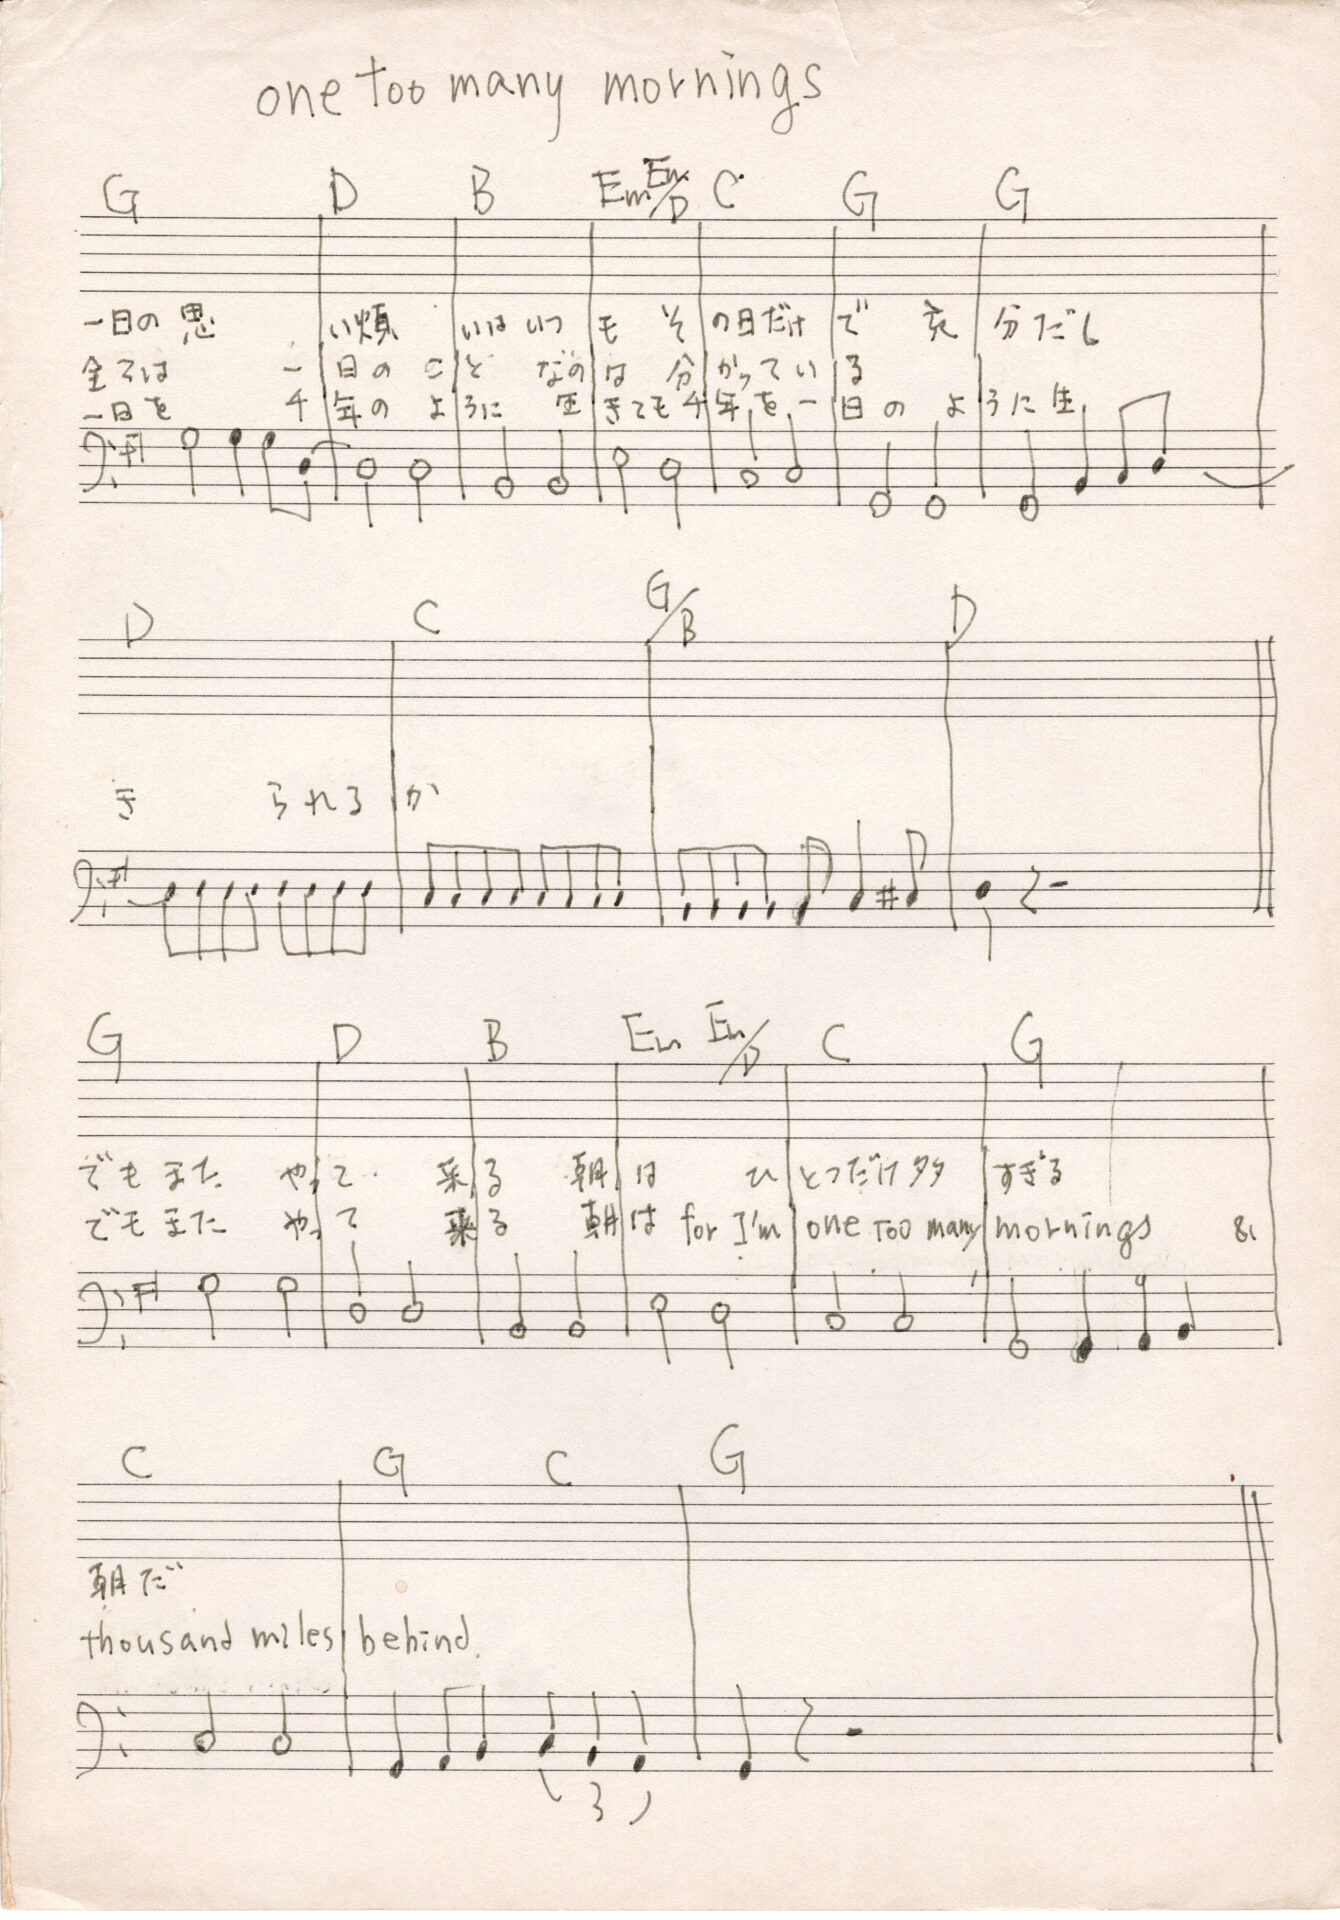 one too many mornings
G D B Em Em/D C G G
一日の思い煩いはいつもその日だけで充分だし
全ては一日のことなのは分かっている
一日を千年のように生きても千年を一日のように生
D C G/B D
きられるか
G D B Em Em/D C G
でもまたやって来る朝はひとつだけ多すぎる
でもまたやって来る朝は for I'm one too many mornings &
C G C G
朝だ
thousand miles behind
3